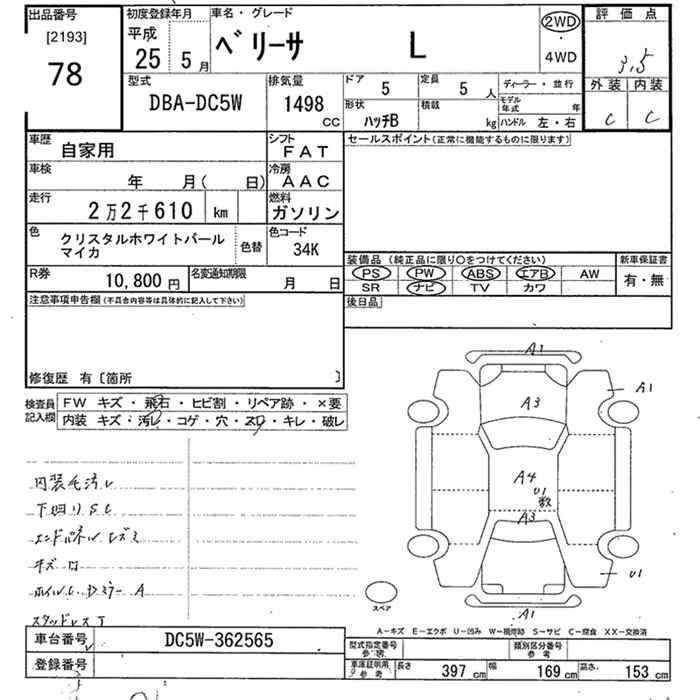 出品番号
[2193]
78
初度登録年月
平成
25 5月
車名・グレード
ベリーサ L
2WD
・
4WD
評価点
3.5
外装 内装
C C
型式
DBA-DC5W
排気量
1498
CC
ドア 5
定員 5人
形状 ハッチB
積載 kg
ディーラー・並行
モデル年式 年
ハンドル 左・右
車歴
自家用
シフト
FAT
車検
年 月( 日)
冷房
AAC
走行
2万2千610 km
燃料
ガソリン
色
クリスタルホワイトパール
マイカ
色替
色コード
34K
R券 10,800円
名変通知期限
月 日
セールスポイント(正常に機能するものに限ります)
装備品(純正品に限り○をつけてください)
PS PW ABS エアB AW
SR ナビ TV カワ
新車保証書
有・無
後日品
注意事項申告欄(不具合内容等は具体的に記入して下さい)
修復歴 有〔箇所 〕
検査員
記入欄
FW キズ・飛石・ヒビ割・リペア跡・×要
内装 キズ・汚レ・コゲ・穴・スリ・キレ・破レ
内装毛汚レ
下回りSC
エンドパネル
キズ
A
スタッドレス
A1
A3
A1
A4
U1
数
A3
U1
A1
スペア
A-キズ E-エクボ U-凹み W-補修跡 S-サビ C-腐食 XX-交換済
車台番号
DC5W-362565
登録番号
型式指定番号
参考
類別区分番号
参考
車庫証明用
参考
長さ 397 cm 幅 169 cm 高さ 153 cm